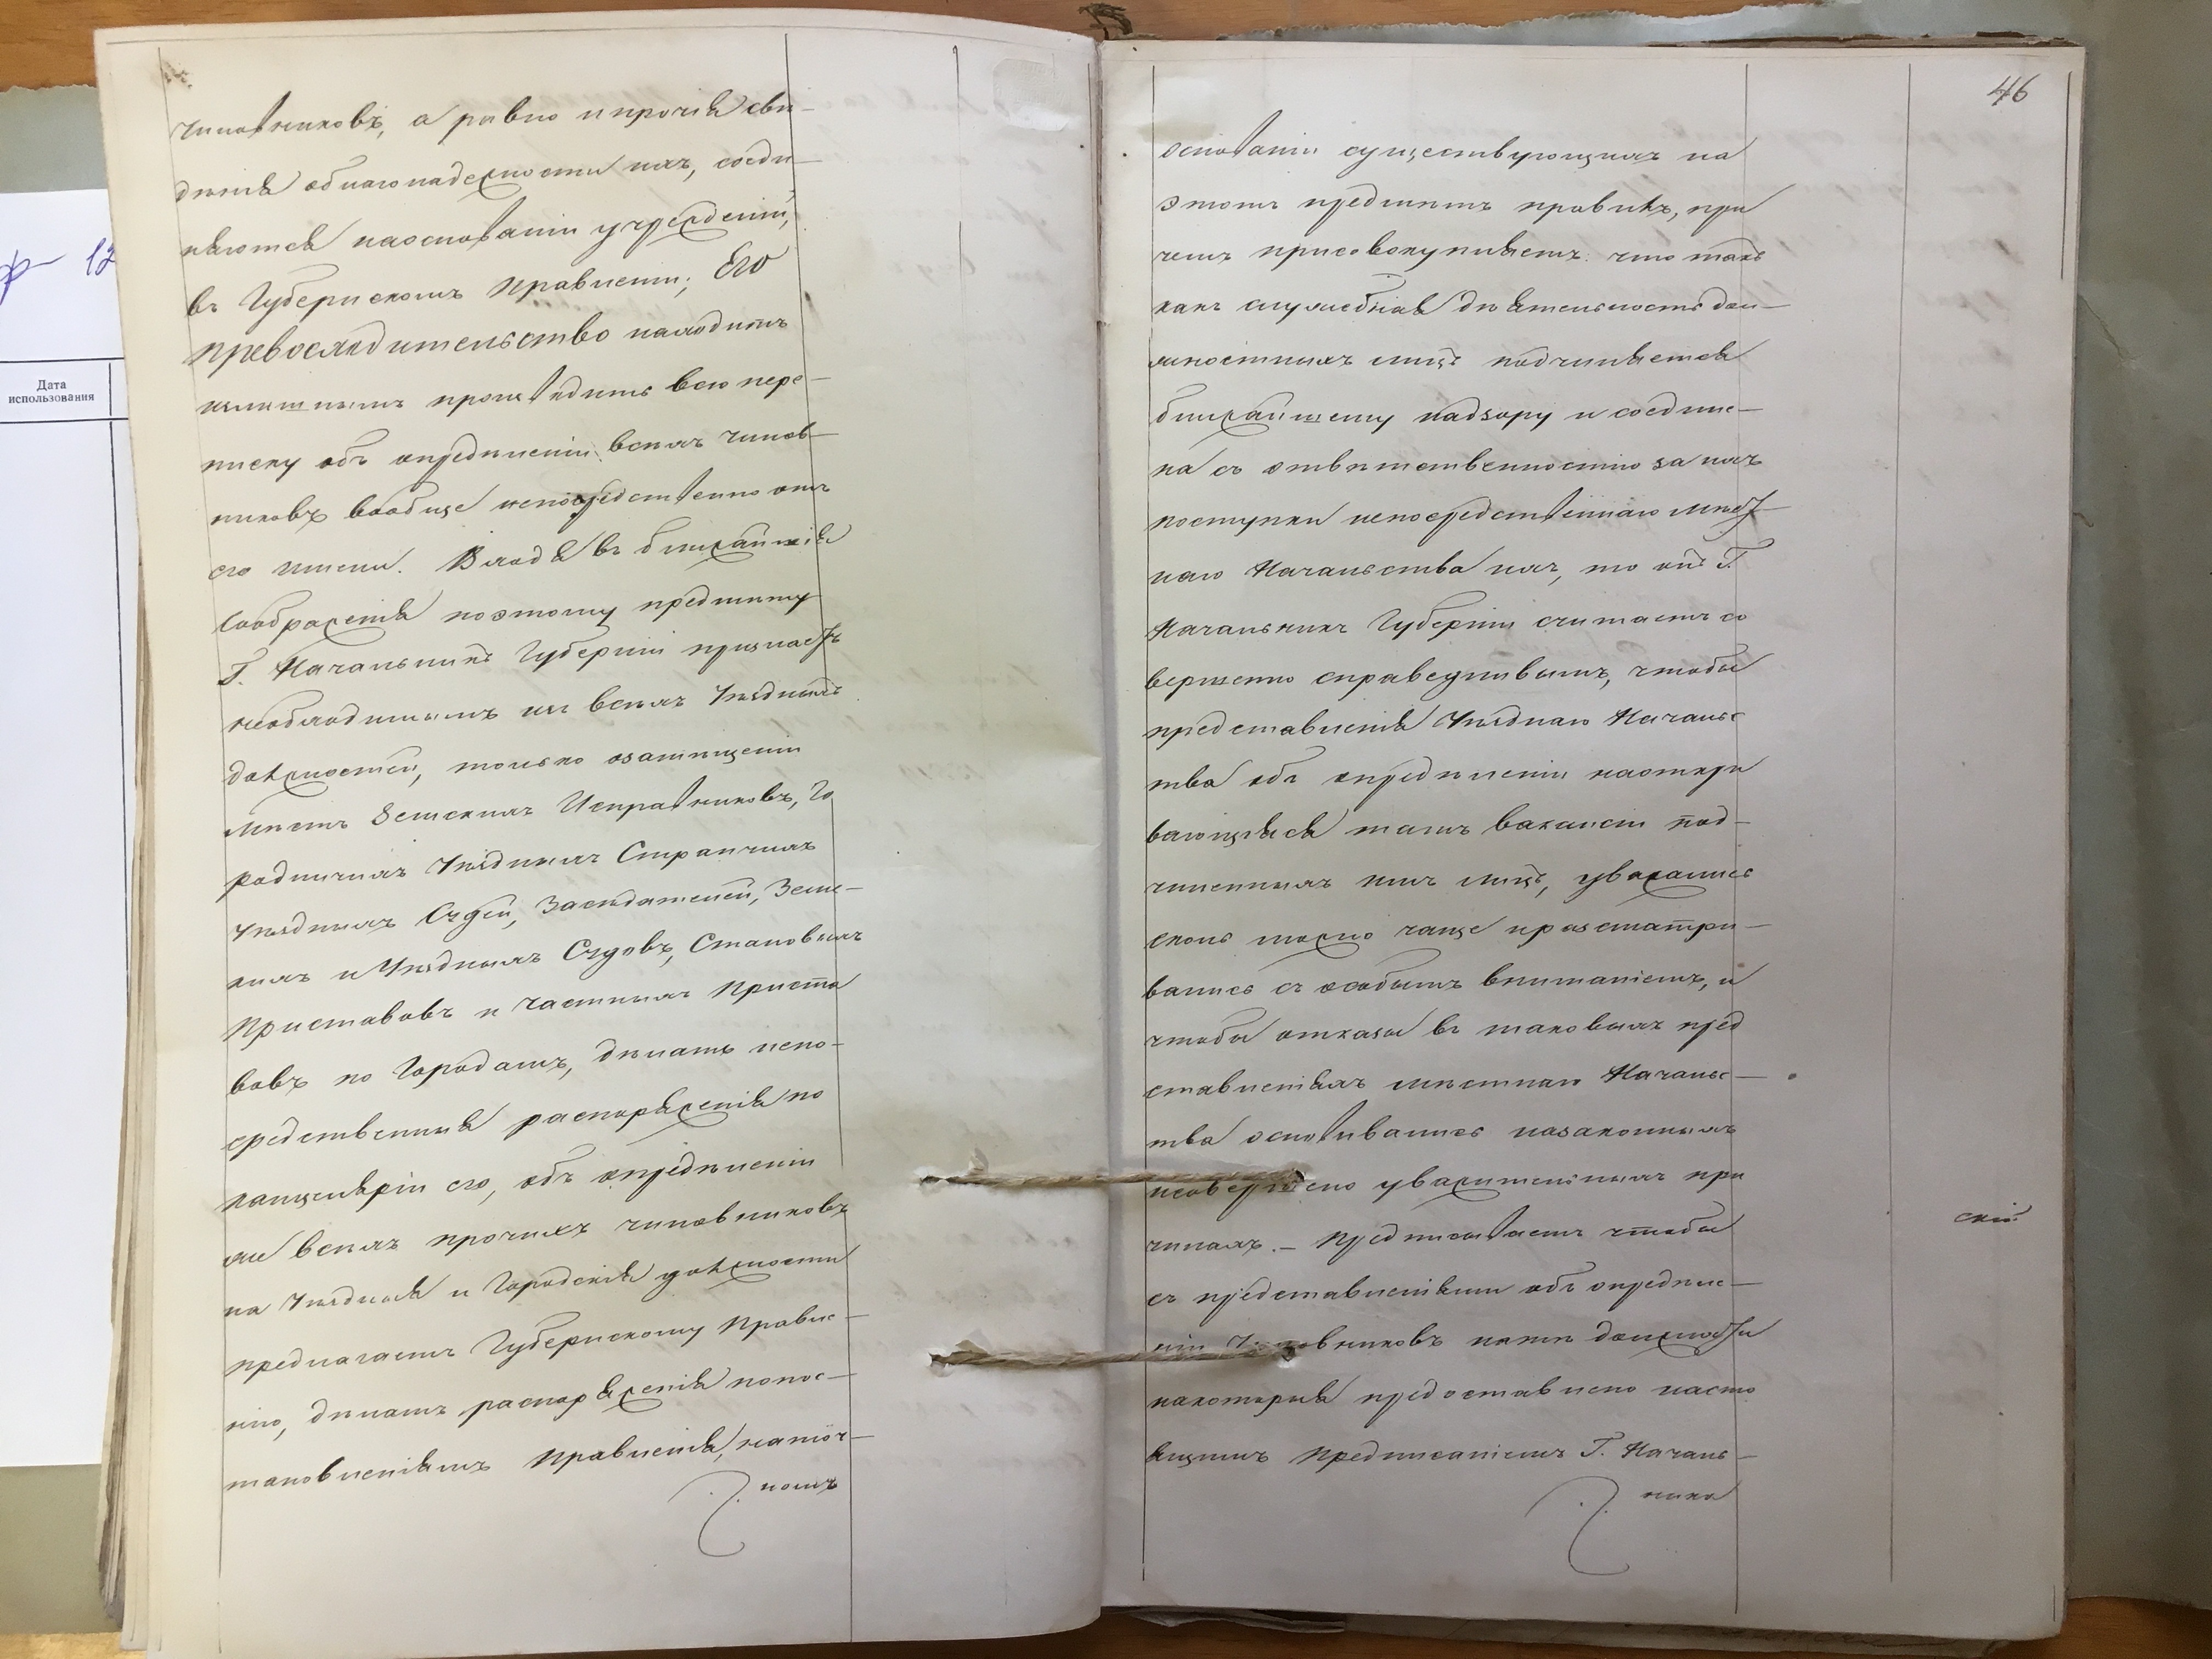 ф 12
Дата
использования
чиновниковъ, а равно и прочія свѣ-
дѣнія облагонадежности ихъ, соеди-
няются наоснованіи учрежденій,
въ Губернскомъ Правленіи; Его
Превосходительство находитъ
излишнимъ производить всю пере-
писку объ опредѣленіи всѣхъ чинов-
никовъ вообще непосредственно отъ
его имени. Входя въ ближайшія
соображенія поэтому предмету
Г. Начальникъ Губерніи признаетъ
необходимымъ изъ всѣхъ Уѣздныхъ
должностей, только озамѣщеніи
мѣстъ Земскихъ Исправниковъ, Го
родничихъ Уѣздныхъ Стряпчихъ
Уѣздныхъ Судей, Засѣдателей, Земс-
кихъ и Уѣздныхъ Судовъ, Становыхъ
Приставовъ и частныхъ Приста
вовъ по Городамъ, дѣлать непо-
средственныя распоряженія по
канцеляріи его, объ опредѣленіи
же всѣхъ прочихъ чиновниковъ
на Уѣздныя и Городскія должности
предлагаетъ Губернскому Правле-
нію, дѣлать распоряженія попос-
тановленіямъ Правленія, наточ-
номъ
46
основаніи существующихъ на
этотъ предметъ правилъ, при
чемъ присовокупляетъ что такъ
какъ служебная дѣятельность дол-
жностныхъ лицъ подчиняется
ближайшему надзору и соедине-
на съ отвѣтственностію за ихъ
поступки непосредственнаго мѣст-
наго Начальства ихъ, то онъ Г.
Начальникъ Губерніи считаетъ со
вершенно справедливымъ, чтобы
представленія Уѣзднаго Начальс
тва объ опредѣленіи наоткры
вающіяся тамъ вакансіи под-
чиненныхъ имъ лицъ, уважались
сколь можно чаще и разсматри-
вались съ особымъ вниманіемъ, и
чтобы отказы въ таковыхъ пред
ставленіяхъ мѣстнаго Начальс-
тва основывались назаконныхъ
исовершено уважительныхъ при
чинахъ. - Предписываетъ чтобы
съ представленіями объ опредѣле-
ніи Чиновниковъ натѣ должности
накоторыя предоставлено насто
ящимъ Предписаніемъ Г. Началь-
ника
скій